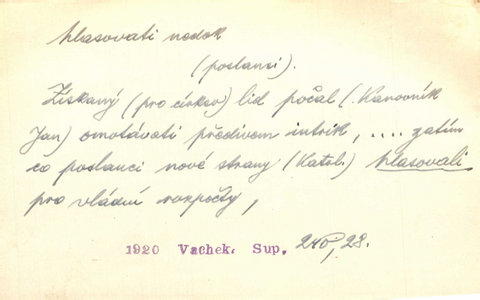 hlasovati nedok
(poslanci).
Získaný (pro církev) lid počal (. Kanovník
Jan) omotávati předivem intrik, .... zatím
co poslanci nové strany (Katol.) hlasovali
pro vládní rozpočty,
1920 Vachek. Sup. 28.